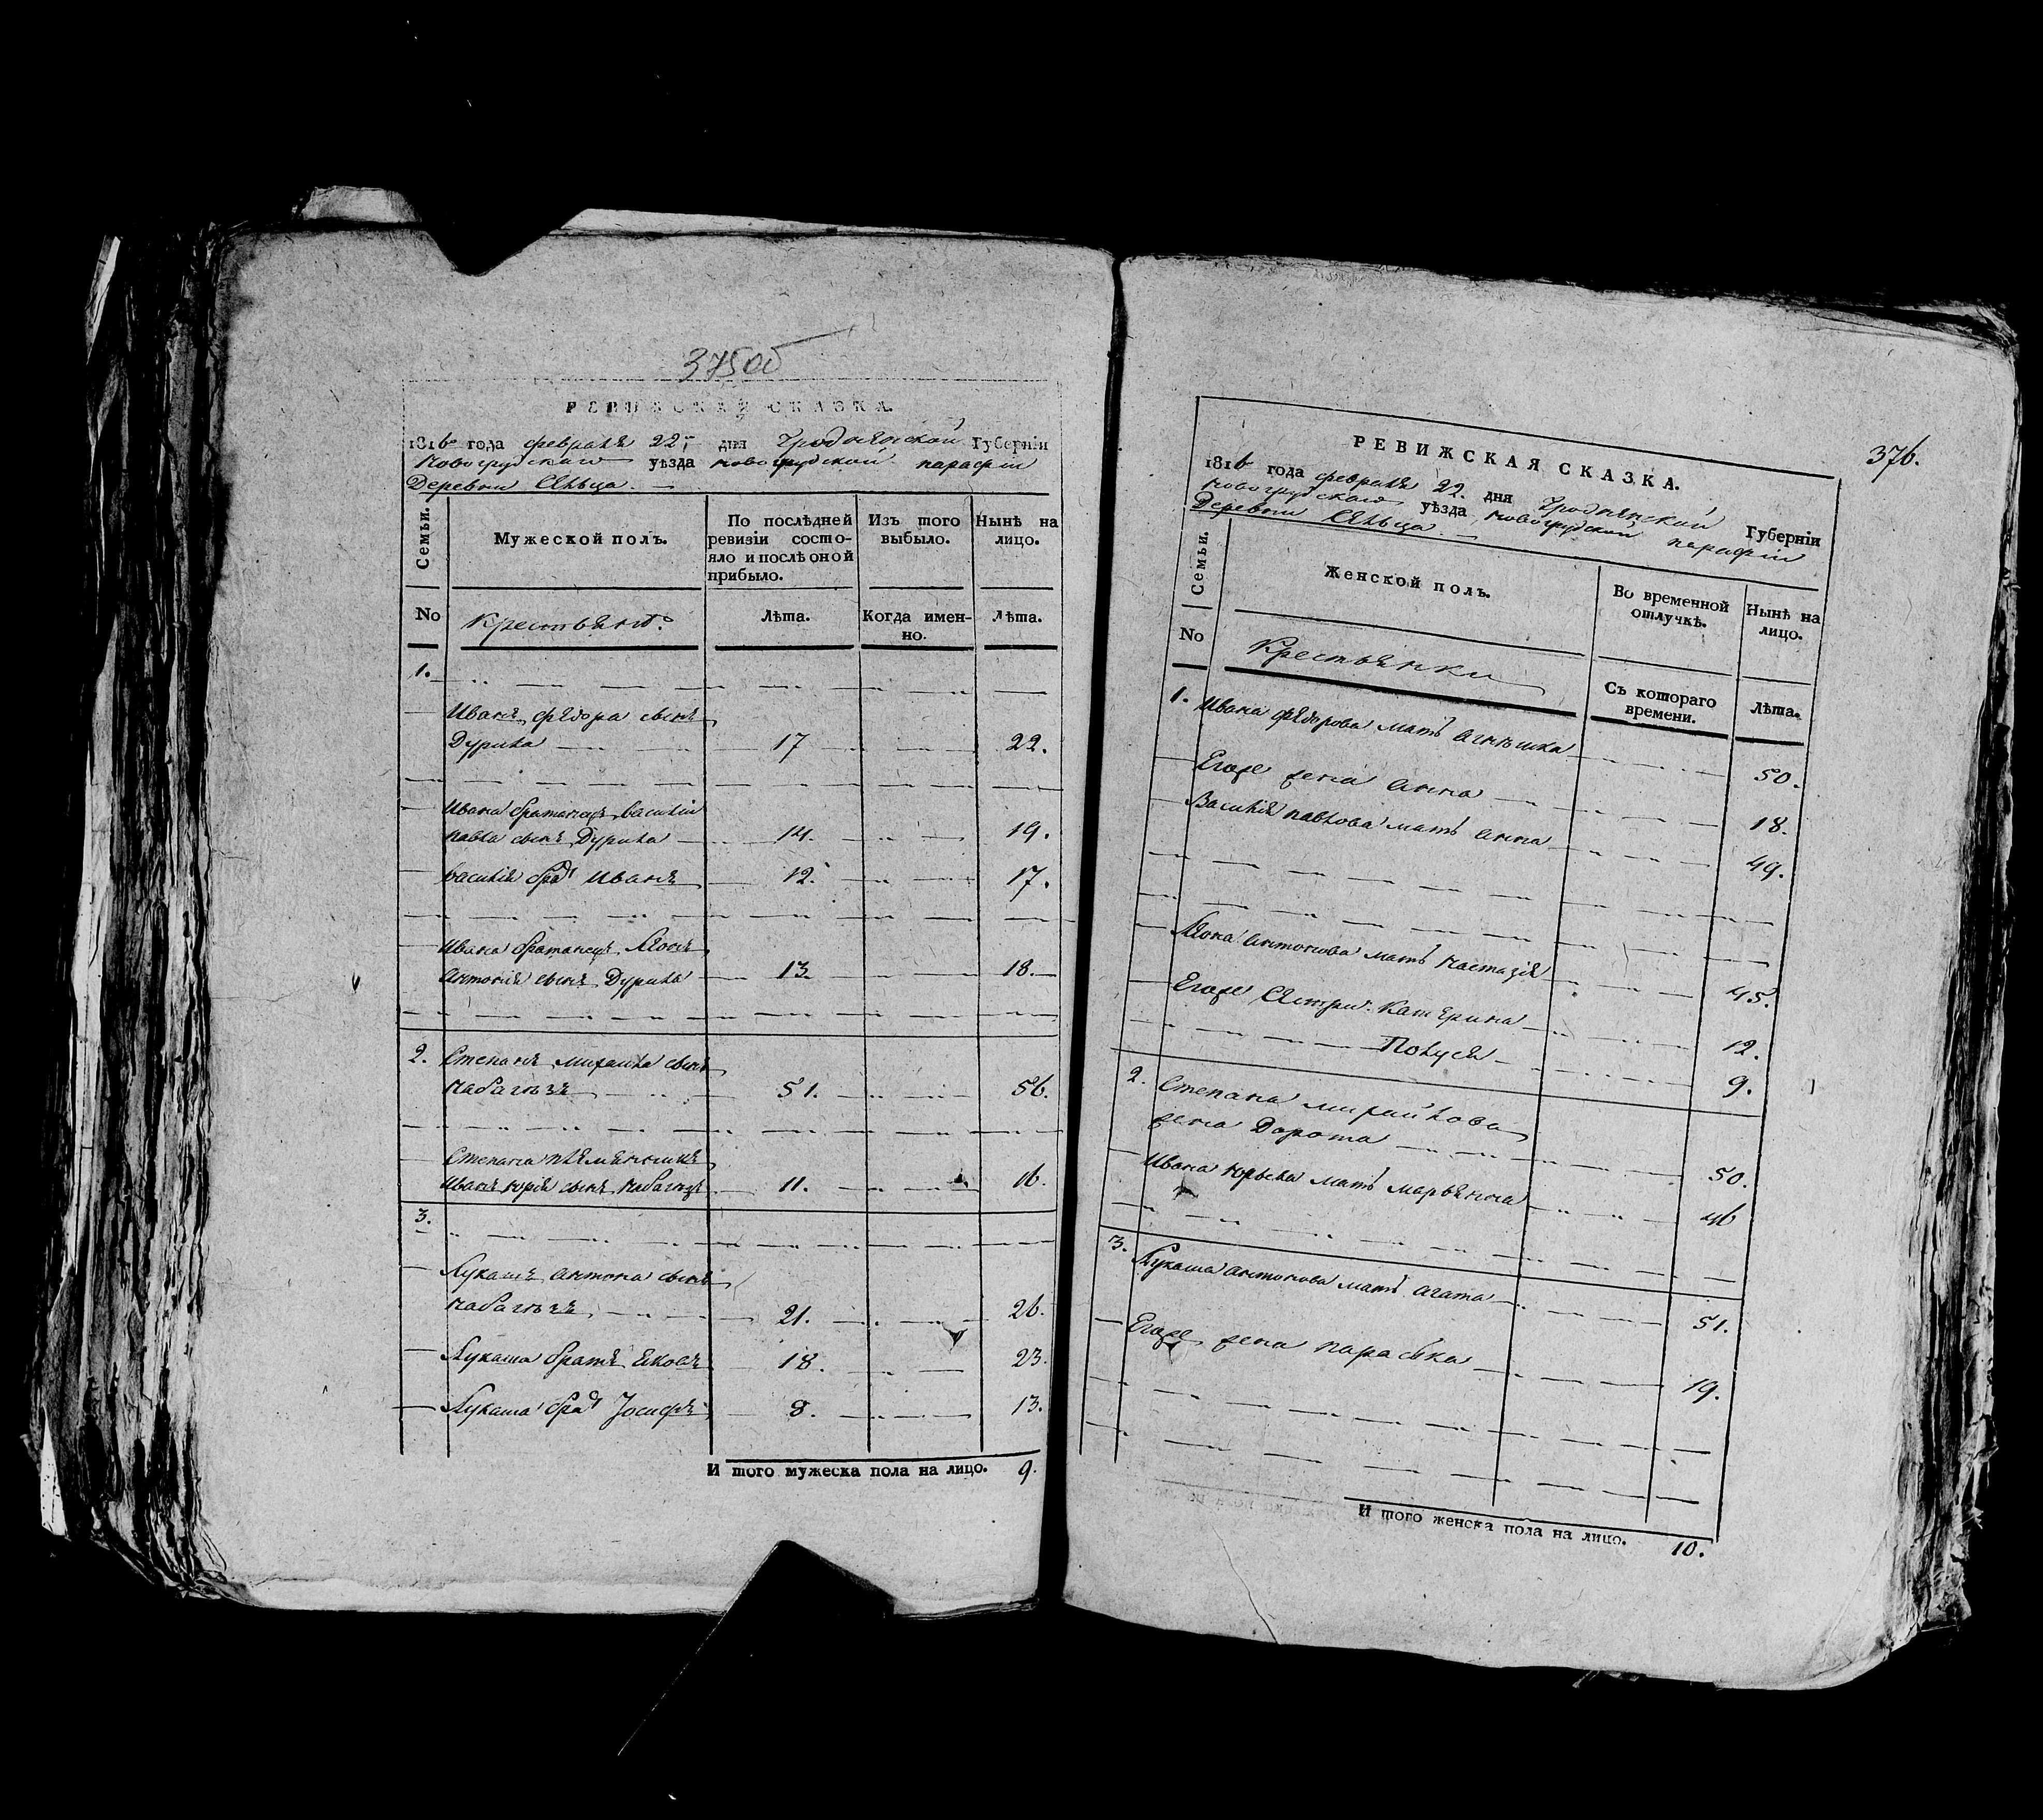 375об
РЕВИЖСКАЯ СКАЗКА.
1816 года февраля 22 дня Гродненской Губерніи
Новогрудскаго уѣзда новогрудской парафіи
Деревни Сельца.
Семьи.
Мужеской полъ.
По послѣдней ревизіи состо-
яло и послѣ оной
прибыло.
Изъ того
выбыло.
Нынѣ на
лицо.
No
Крестьянѣ.
Лѣта.
Когда имен-
но.
Лѣта.
1.
Иванъ Федора сынъ
Дурила 17 22.
Ивана братанецъ Василій
Павла сынъ Дурила 14. 19.
Василія братъ Иванъ 12. 17.
Ивана братанецъ Леонъ
Антонія сынъ Дурила 13. 18.
2. Степанъ Михаила сынъ
51. 56.
Степана племянникъ
Иванъ Юрія сынъ 11. 16.
3.
Лукашъ Антона сынъ
21. 26.
Лукаша братъ Яковъ 18. 23.
Лукаша братъ Іосифъ 8. 13.
И того мужеска пола на лицо. 9.
376.
РЕВИЖСКАЯ СКАЗКА.
1816 года февраля 22. дня Гродненской Губерніи
Новогрудскаго уѣзда Новогрудской парафіи
Деревни Сельца.
Семьи.
Женской полъ.
Во временной
отлучкѣ.
Нынѣ на
лицо.
No
Крестьянки
Съ котораго
времени.
Лѣта.
1. Ивана Федорова мать Агнешка 50.
Егоже жена Анна 18.
Василія Павлова мать Анна 49.
Леона Антонова мать Настазія 45.
Егоже Сестры: Катерина 12.
Полуся 9.
2. Степана Михайлова
жена Дорота 50.
Ивана Юрьева мать Марьянна 46
3. Лукаша Антонова мать Агата 51.
Егоже жена Параська 19.
И того женска пола на лицо. 10.